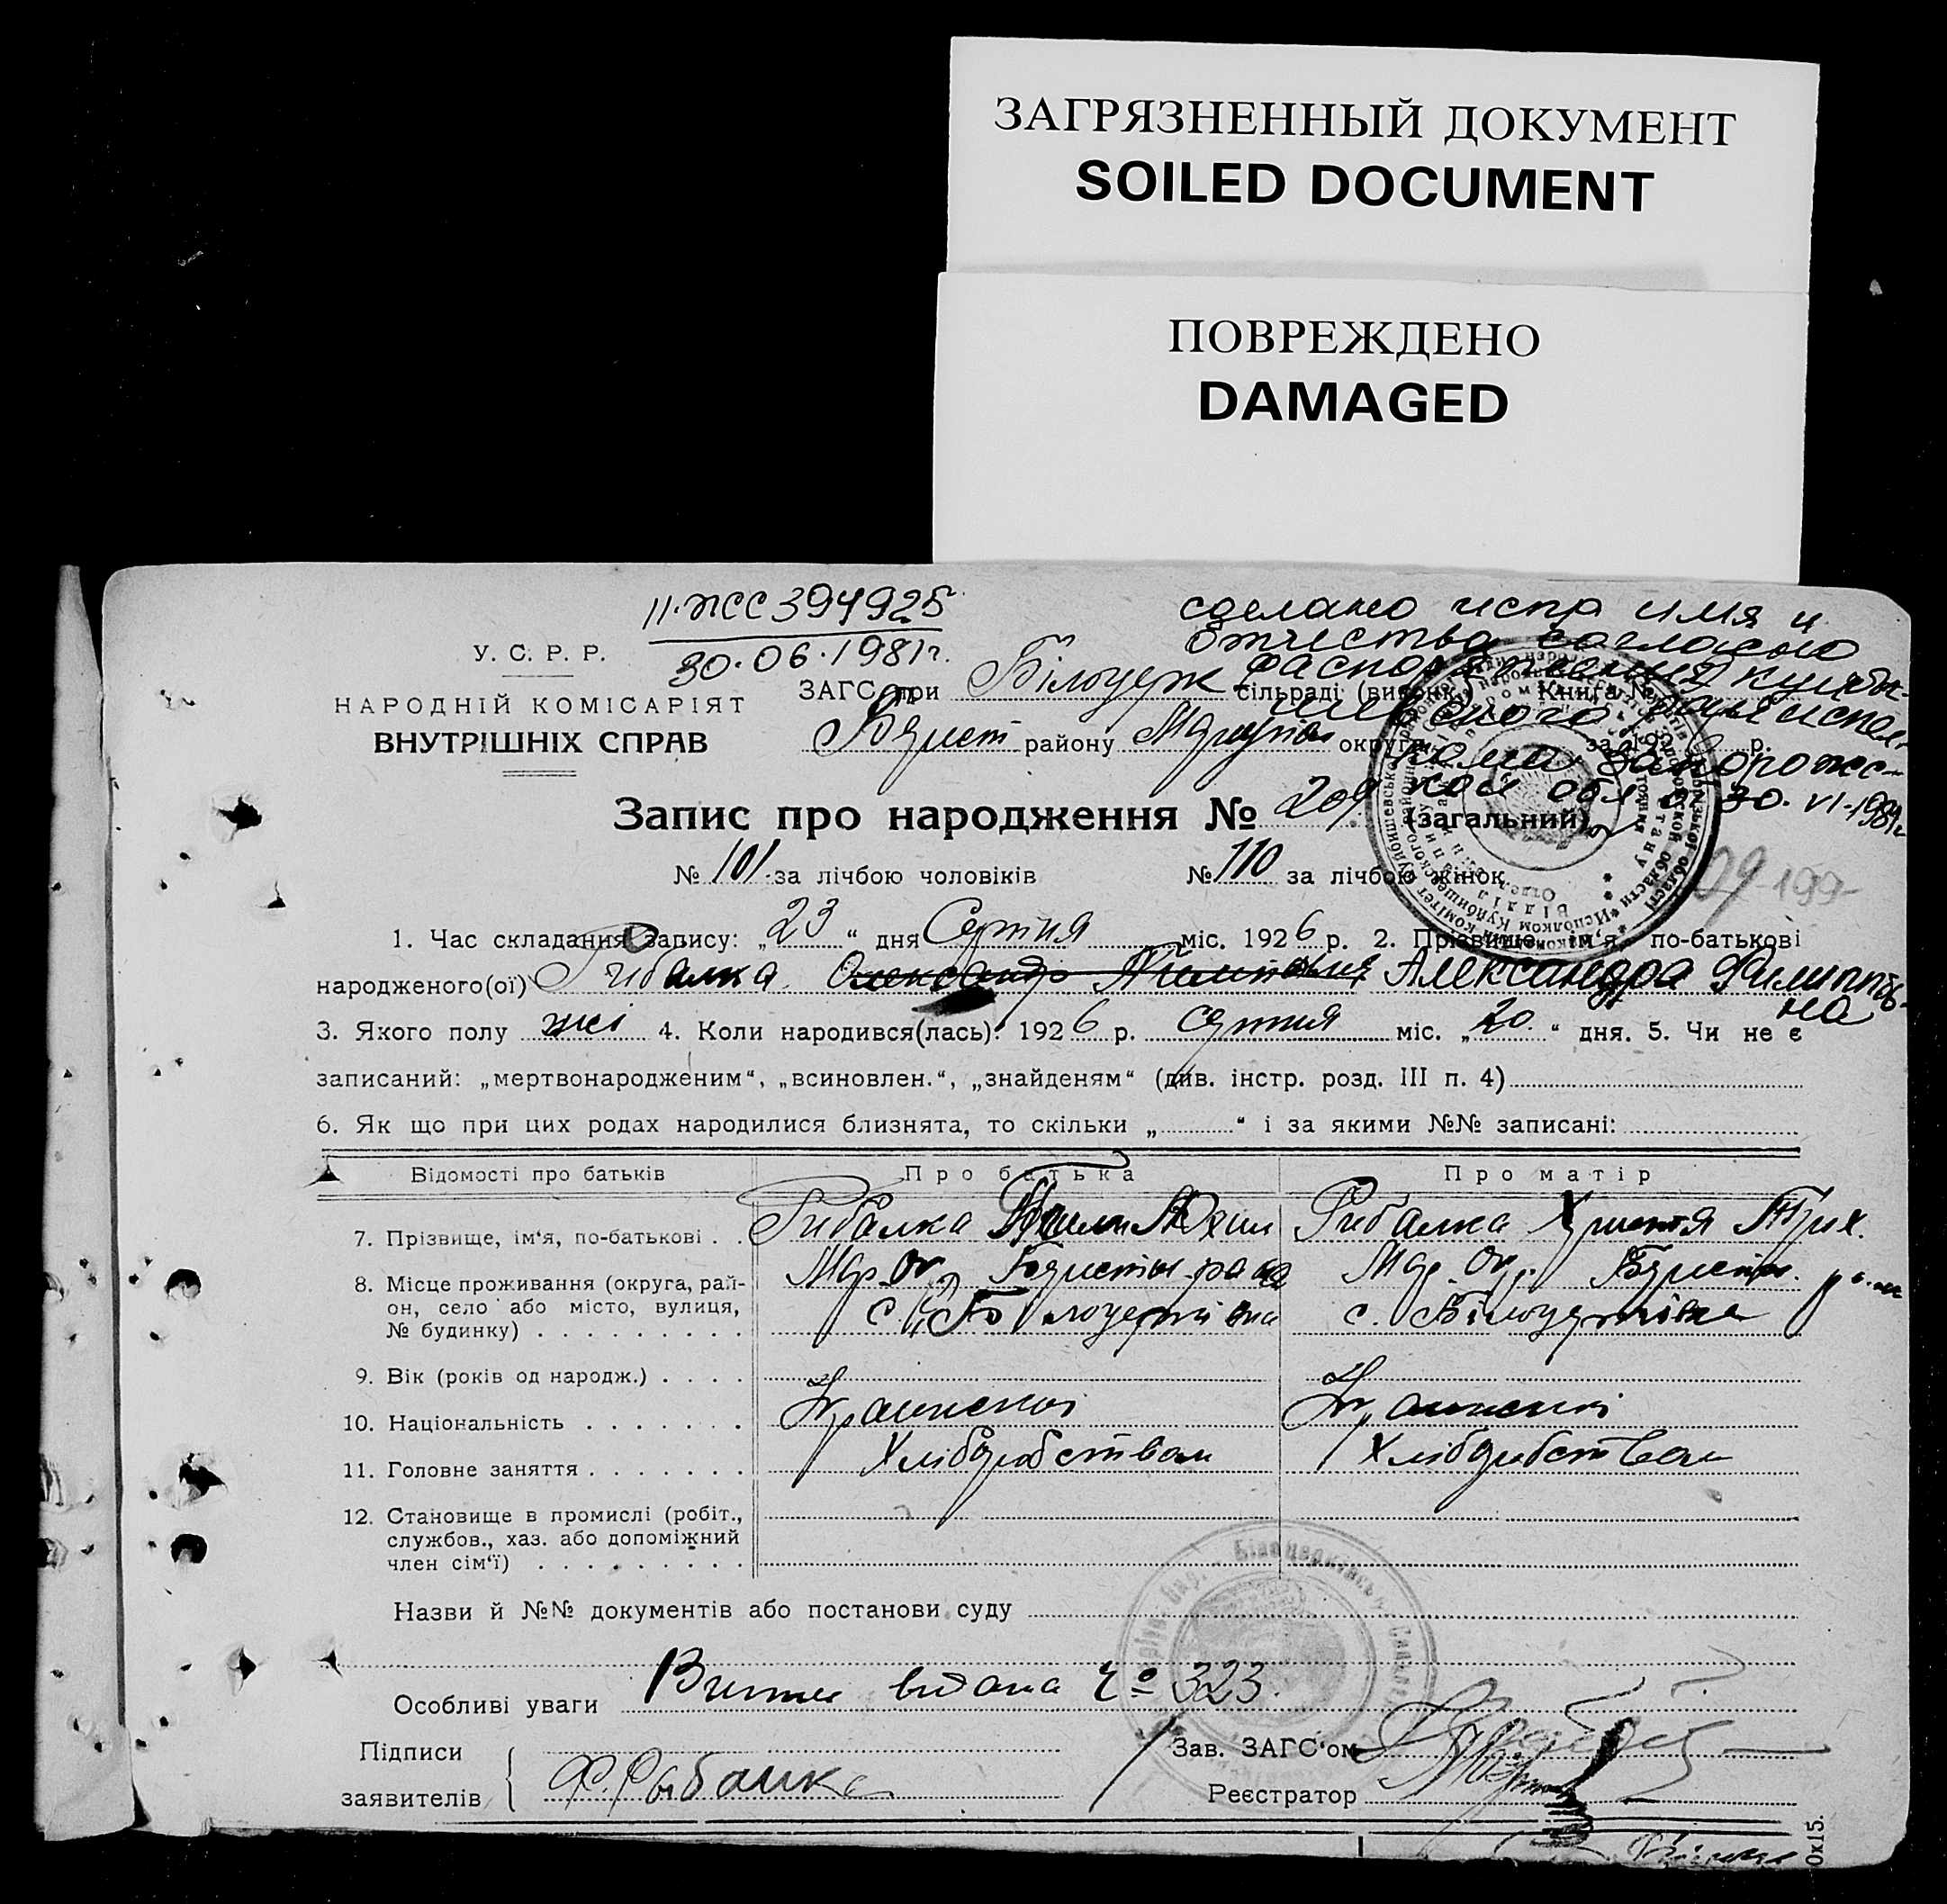 ЗАГРЯЗНЕННЫЙ ДОКУМЕНТ
SOILED DOCUMENT
ПОВРЕЖДЕНО
DAMAGED
II-ЖС 394925
30.06.1981г.
сделано испр имя и
отчества согласно
распоряжения Куйбы-
шевского райиспол-
кома Запорожс-
кой обл от 30.VI-1981г
У. С. Р. Р.
НАРОДНІЙ КОМІСАРІЯТ
ВНУТРІШНІХ СПРАВ
ЗАГС при Білоцерк сільраді (виконк.) Книга №
району округи за 192 р.
Запис про народження № 209 (загальний)
№ 101 за лічбою чоловіків № 110 за лічбою жінок
1. Час складання запису: „23“ дня Серпня міс. 1926 р. 2. Прізвище, ім‘я, по-батькові
народженого(ої) Рибалка Александра Филиппов-
на
3. Якого полу жі 4. Коли народився(лась): 1926 р. серпня міс. „20“ дня. 5. Чи не є
записаний: „мертвонародженим“, „всиновлен.“, „знайденям“ (див. інстр. розд. III п. 4)
6. Як що при цих родах народилися близнята, то скільки „ “ і за якими №№ записані:
Відомості про батьків Про батька Про матір
7. Прізвище, ім‘я, по-батькові . . Рибалка Рибалка Христя
8. Місце проживання (округа, рай-
он, село або місто, вулиця,
№ будинку) . . . . . . . . . с. Білоцерківка с. Білоцерківка
9. Вік (років од народж.) . . . .
10. Національність . . . . . . . Українські Українські
11. Головне заняття . . . . . . . Хліборобством Хліборобством
12. Становище в промислі (робіт.,
службов., хаз. або допоміжний
член сім‘ї) . . . . . . . . .
Назви й №№ документів або постанови суду
Особливі уваги видана № 323.
Підписи
заявителів Ф. Рибалка
Зав. ЗАГС‘ом
Реєстратор
0x15.